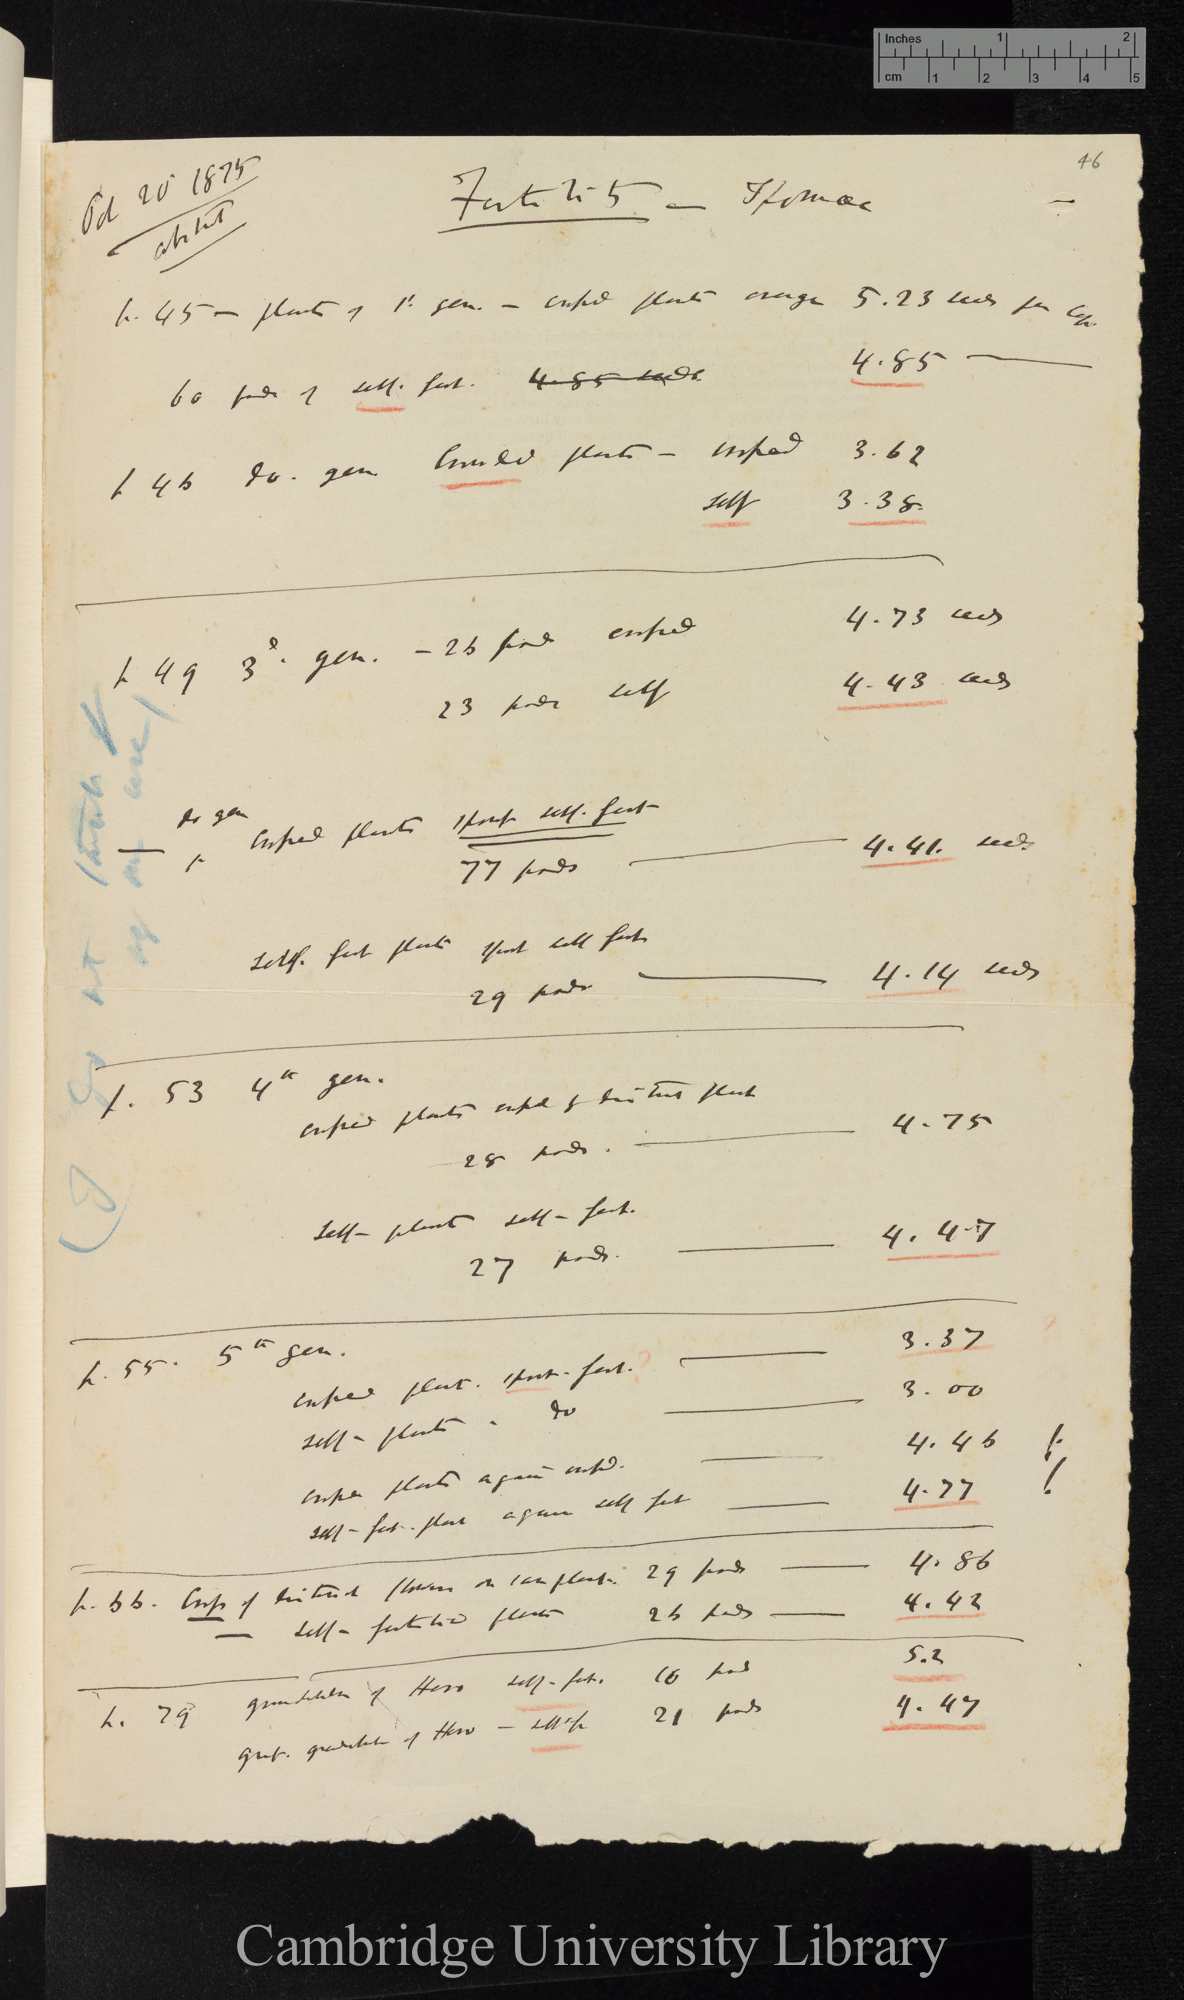 Inches 1 2
cm 1 2 3 4 5
46
Oct 20 1875
abstract
Fertility — Ipomœa
p. 45 — plants of 1st gen. — crossed plants average 5.23 seeds per cap.
60 pods of self. fert. 4.85 seeds 4.85
p 46 do. gen Crowded plants — crossed 3.62
self 3.38
p 49 3d. gen. — 26 pods crossed 4.73 seeds
23 pods self 4.43 seeds
do gen
p Crossed plants spont self. fert
77 pods 4.41. seeds
self. fert plants spont self fert
29 pods 4.14 seeds
p. 53 4th gen.
crossed plants crossed by distinct plant
28 pods. 4.75
Self- plants self- fert.
27 pods. 4.47
p. 55. 5th gen.
crossed plant. spont. fert. ? 3.37
self- plants - do 3.00
crossed plants again crossd. 4.46 !
self- fert. plant again self fert 4.77 !
p. 66. Cross of distinct flowers on same plant. 29 pods 4.86
— self- fertilised plants 26 pods 4.42
p. 79 grandchildren of Hero self-fert. 10 pods 5.2
great. grandchildren of Hero — self 21 pods 4.47
(I do not think of
any use)
Cambridge University Library